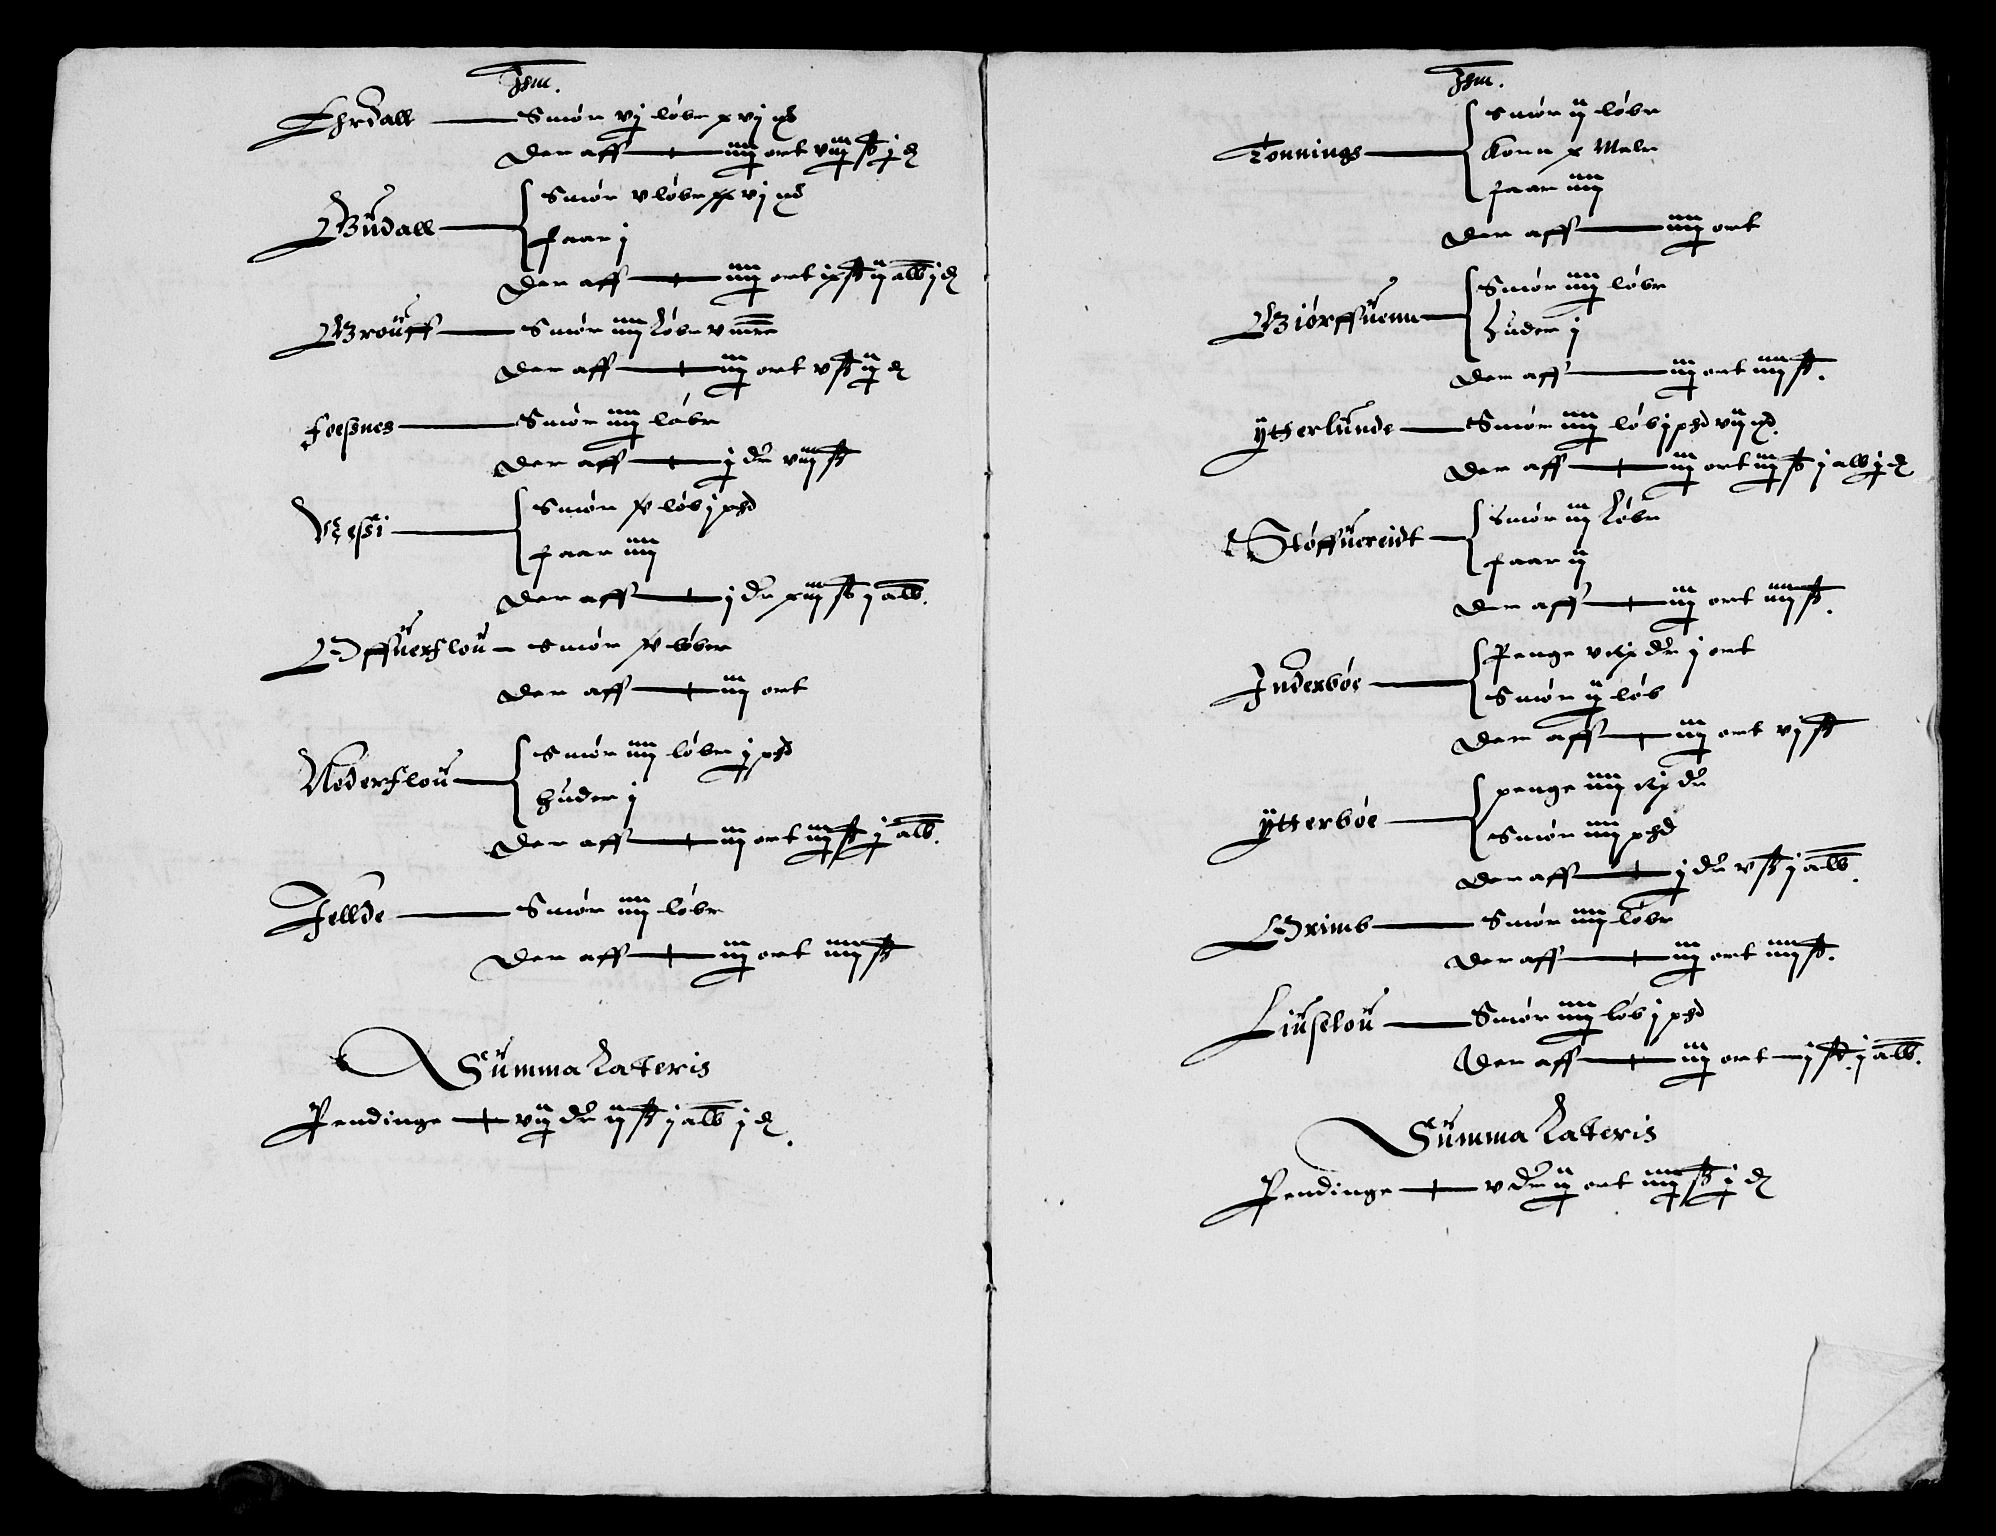 Jhm.
Ehrdall — Smör vj löbr xvj m͞k
Der aff — iiij ort viij ß j ₰
Büdall — Smör v löbr xvj m͞k
faar j
Der aff — iiij ort ix ß ij alb j ₰
Broüff — Smör iiij löbr v m͞rc
Der aff — iij ort v ß ij ₰
foeßnes — Smör iiij löbr
Der aff — j dr viij ß
Veßi — Smör v löb j pḥd
faar iiij
Der aff — j dr xiij ß j alb.
Offüerflou — Smör v löber
Der aff — iij ort
Nederflou — Smör iiij löbr j pḥd
huder j
Der aff — iij ort iij ß j alb.
Jellde — Smör iiij löbr
Der aff — iij ort iiij ß
Summa Lateris
Pendinge — vij dr ij ß j alb j ₰.
Jhm.
Tonnings — Smör ij löbr
Korn x Meler
faar iiij
Der aff — iiij ort
Biörffüenn — Smör iiij löbr
huder j
Der aff — iij ort iiij ß.
ÿtterlunde — Smör iiij löb j pḥd vij m͞k.
Der aff — iij ort iij ß j alb j ₰
Stöffüereidt — Smör iij löbr
faar ij
Der aff — iij ort iiij ß.
Jnderböe — Penge v Rix dr j ort
Smör ij löb
Der aff — iij ort vj ß
ÿtterböe — penge iiij Rix dr
Smör iiij pḥd
Der aff — j dr v ß j alb.
Grimb — Smör iiij löbr
Der aff — iij ort iiij ß.
Liuselou — Smör iiij löb j pḥd
Der aff — iij ort — j ß. j alb.
Summa Lateris
Pendinge — v dr ij ort iiij ß j ₰